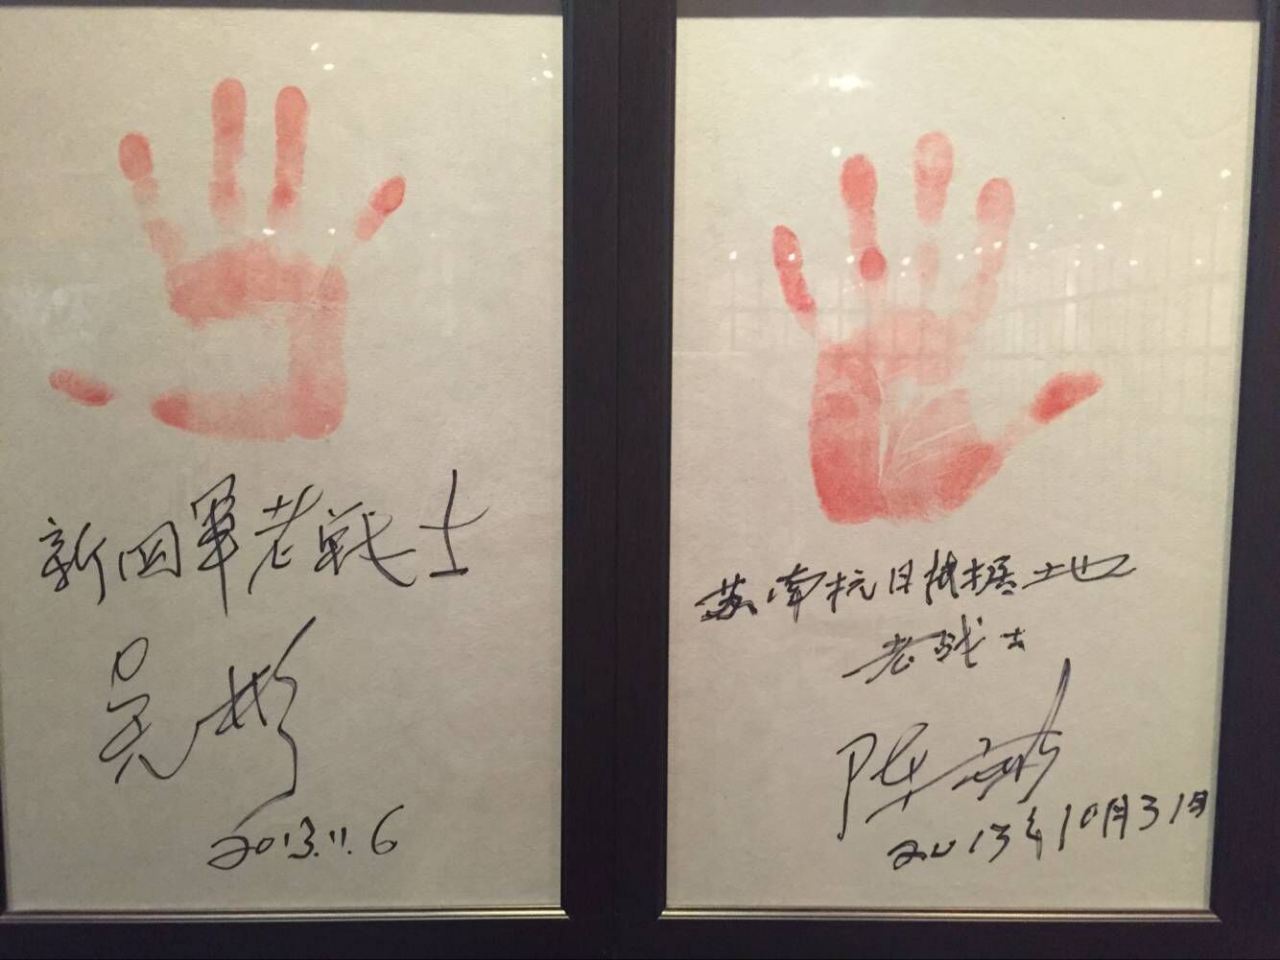 新四軍老戦士
吴彬
2013.11.6
苏南抗日根据地
老战士
陈
2013年10月31日